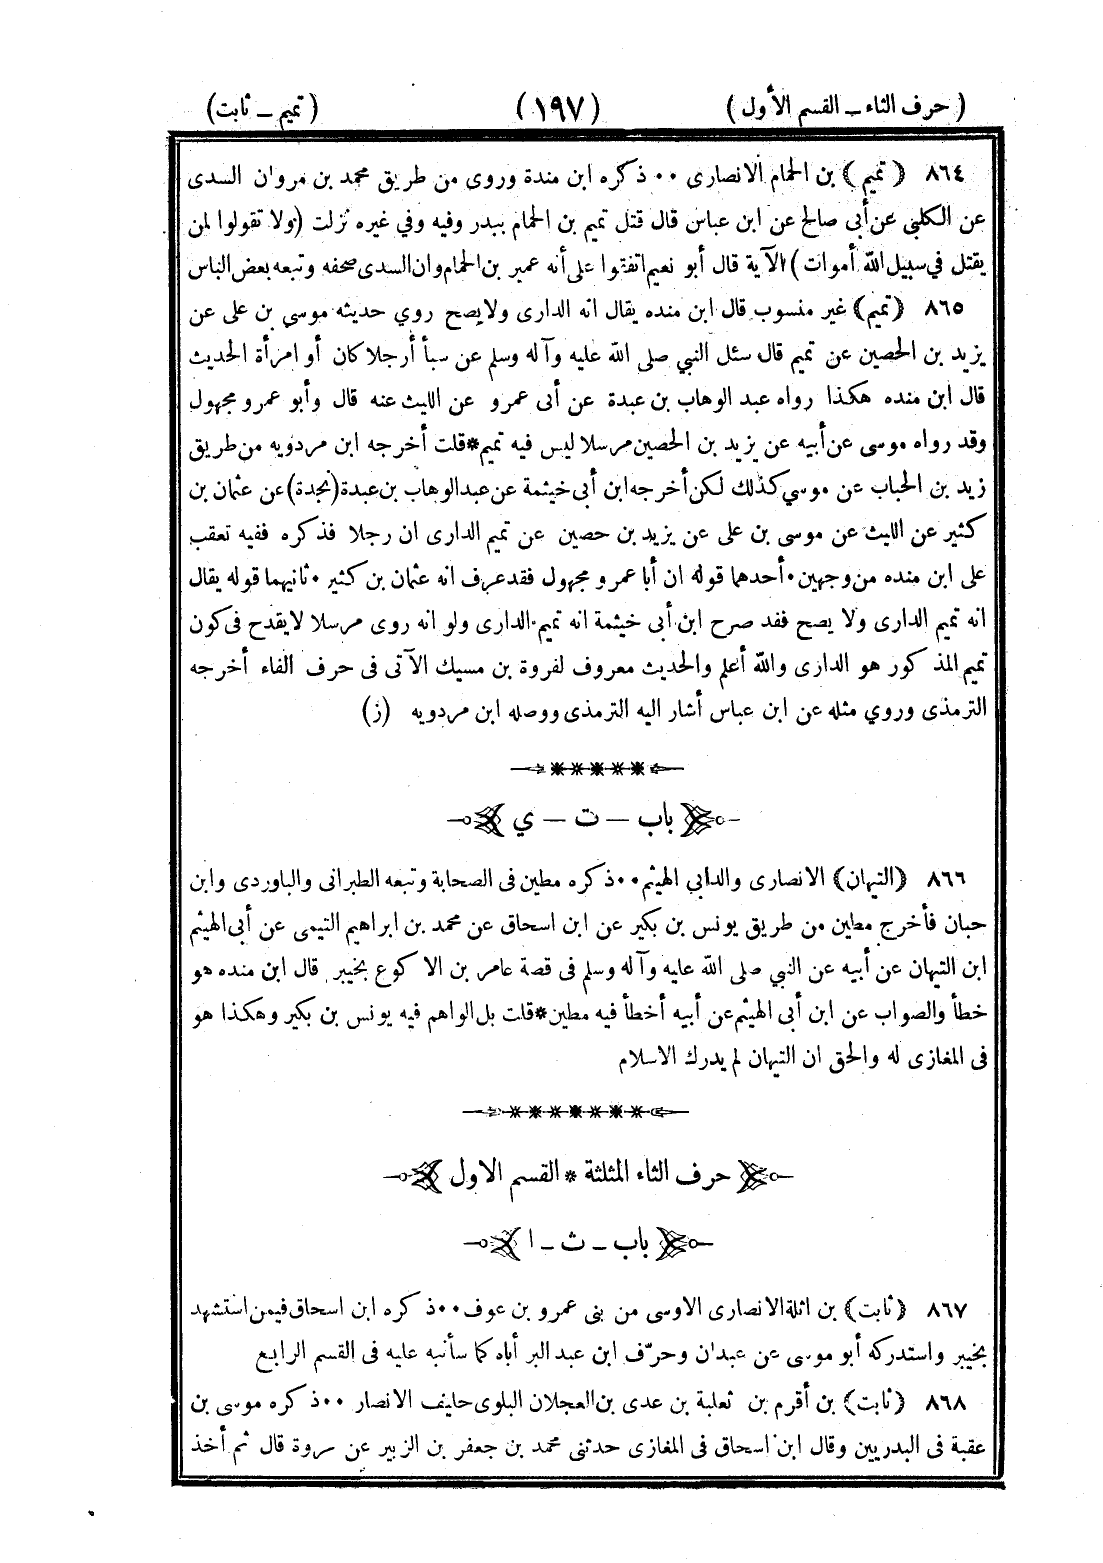 ( حرف الثاء ــ القسم الأول ) (١٩٧) ( تميم ــ ثابت)
٨٦٤ ﴿ تميم ﴾ بن الحمام الانصارى ٠٠ ذكره ابن مندة وروى من طريق محمد بن مروان السدى
عن الكلبى عن أبى صالح عن ابن عباس قال قتل تميم بن الحمام ببدر وفيه وفي غيره نزلت (ولا تقولوا لمن
يقتل في سبيل الله أموات) الآية قال أبو نعيم اتفقوا على أنه عمير بن الحمام وان السدى صحفه وتبعه بعض الناس
٨٦٥ ﴿تميم﴾ غير منسوب قال ابن منده يقال انه الدارى ولا يصح روي حديثه موسي بن على عن
يزيد بن الحصين عن تميم قال سئل النبي صلى الله عليه وآله وسلم عن سبأ أرجلا كان أو امرأة الحديث
قال ابن منده هكذا رواه عبد الوهاب بن عبدة عن أبى عمرو عن الليث عنه قال وأبو عمرو مجهول
وقد رواه موسى عن أبيه عن يزيد بن الحصين مرسلا ليس فيه تميم*قلت أخرجه ابن مردويه من طريق
زيد بن الحباب عن موسي كذلك لكن أخرجه ابن أبى خيثمة عن عبد الوهاب بن عبدة (نجدة) عن عثمان بن
كثير عن الليث عن موسى بن على عن يزيد بن حصين عن تميم الدارى ان رجلا فذكره ففيه تعقب
على ابن منده من وجهين٠أحدها قوله ان أبا عمرو مجهول فقد عرف انه عثمان بن كثير ٠ ثانيهما قوله يقال
انه تميم الدارى ولا يصح فقد صرح ابن أبى خيثمة انه تميم الدارى ولو انه روى مرسلا لا يقدح فى كون
تميم المذكور هو الدارى والله أعلم والحديث معروف لفروة بن مسيك الآتى فى حرف الفاء أخرجه
الترمذى وروي مثله عن ابن عباس أشار اليه الترمذى ووصله ابن مردويه (ز)
﴿ باب ــ ت ــ ي ﴾
٨٦٦ ﴿التيهان﴾ الانصارى والد أبي الهيثم٠٠ذكره مطين فى الصحابة وتبعه الطبرانى والباوردى وابن
حبان فأخرج مطين من طريق يونس بن بكير عن ابن اسحاق عن محمد بن ابراهيم التيمى عن أبى الهيثم
ابن التيهان عن أبيه عن النبي صلى الله عليه وآله وسلم فى قصة عامر بن الاكوع بخيبر قال ابن منده هو
خطأ والصواب عن ابن أبى الهيثم عن أبيه أخطأ فيه مطين*قلت بل الواهم فيه يونس بن بكير وهكذا هو
فى المغازى له والحق ان التيهان لم يدرك الاسلام
﴿ حرف الثاء المثلثة * القسم الاول ﴾
﴿ باب ــ ث ــ ا ﴾
٨٦٧ ﴿ثابت﴾ بن اثلة الانصارى الاوسى من بنى عمرو بن عوف٠٠ذكره ابن اسحاق فيمن استشهد
بخيبر واستدركه أبو موسى عن عبدان وحرّف ابن عبد البر أباه كما سأنبه عليه فى القسم الرابع
٨٦٨ ﴿ثابت﴾ بن أقرم بن ثعلبة بن عدى بن العجلان البلوى حليف الانصار ٠٠ذكره موسى بن
عقبة فى البدريين وقال ابن اسحاق فى المغازى حدثنى محمد بن جعفر بن الزبير عن عروة قال ثم أخذ